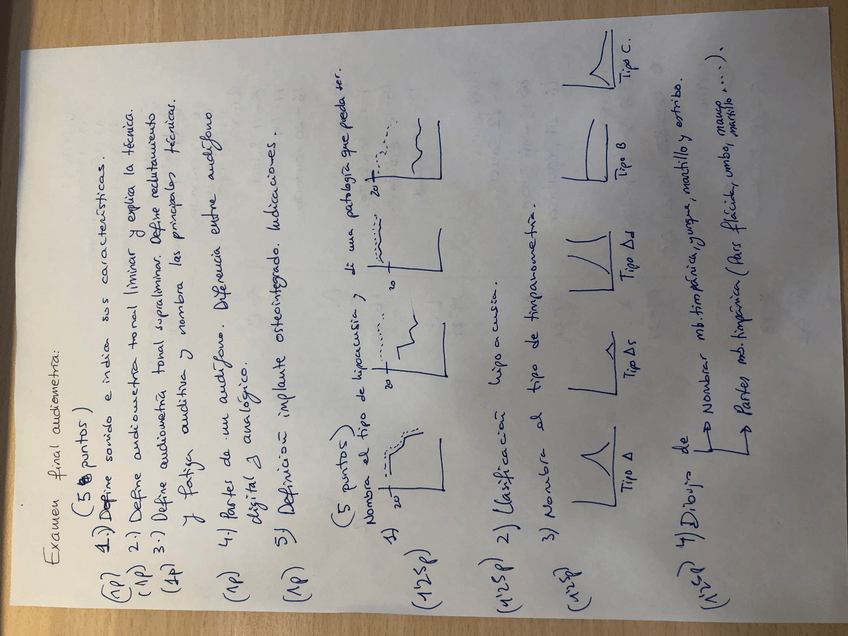 Examen final audiometría:
(5 puntos)
(1p) 1.) Define sonido e indica sus características.
(1p) 2.) Define audiometría tonal liminar y explica la técnica.
(1p) 3.) Define audiometría tonal supraliminar. Define reclutamiento
y fatiga auditiva y nombra las principales técnicas.
(1p) 4.) Partes de un audífono. Diferencia entre audífono
digital y analógico.
(1p) 5) Definición implante osteointegrado. Indicaciones.
(5 puntos)
Nombra el tipo de hipoacusia y di una patología que pueda ser.
(1'25p) 1)
20
20
20
20
(1'25p) 2) Clasificación hipoacusia.
(1'25p) 3) Nombra el tipo de timpanometría.
Tipo A
Tipo As
Tipo Ad
Tipo B
Tipo C.
(1'25p) 4) Dibujo de
→ Nombrar mb. timpánica, yunque, martillo y estribo.
→ Partes mb. timpánica (Pars flácida, umbo, mango martillo, ...).